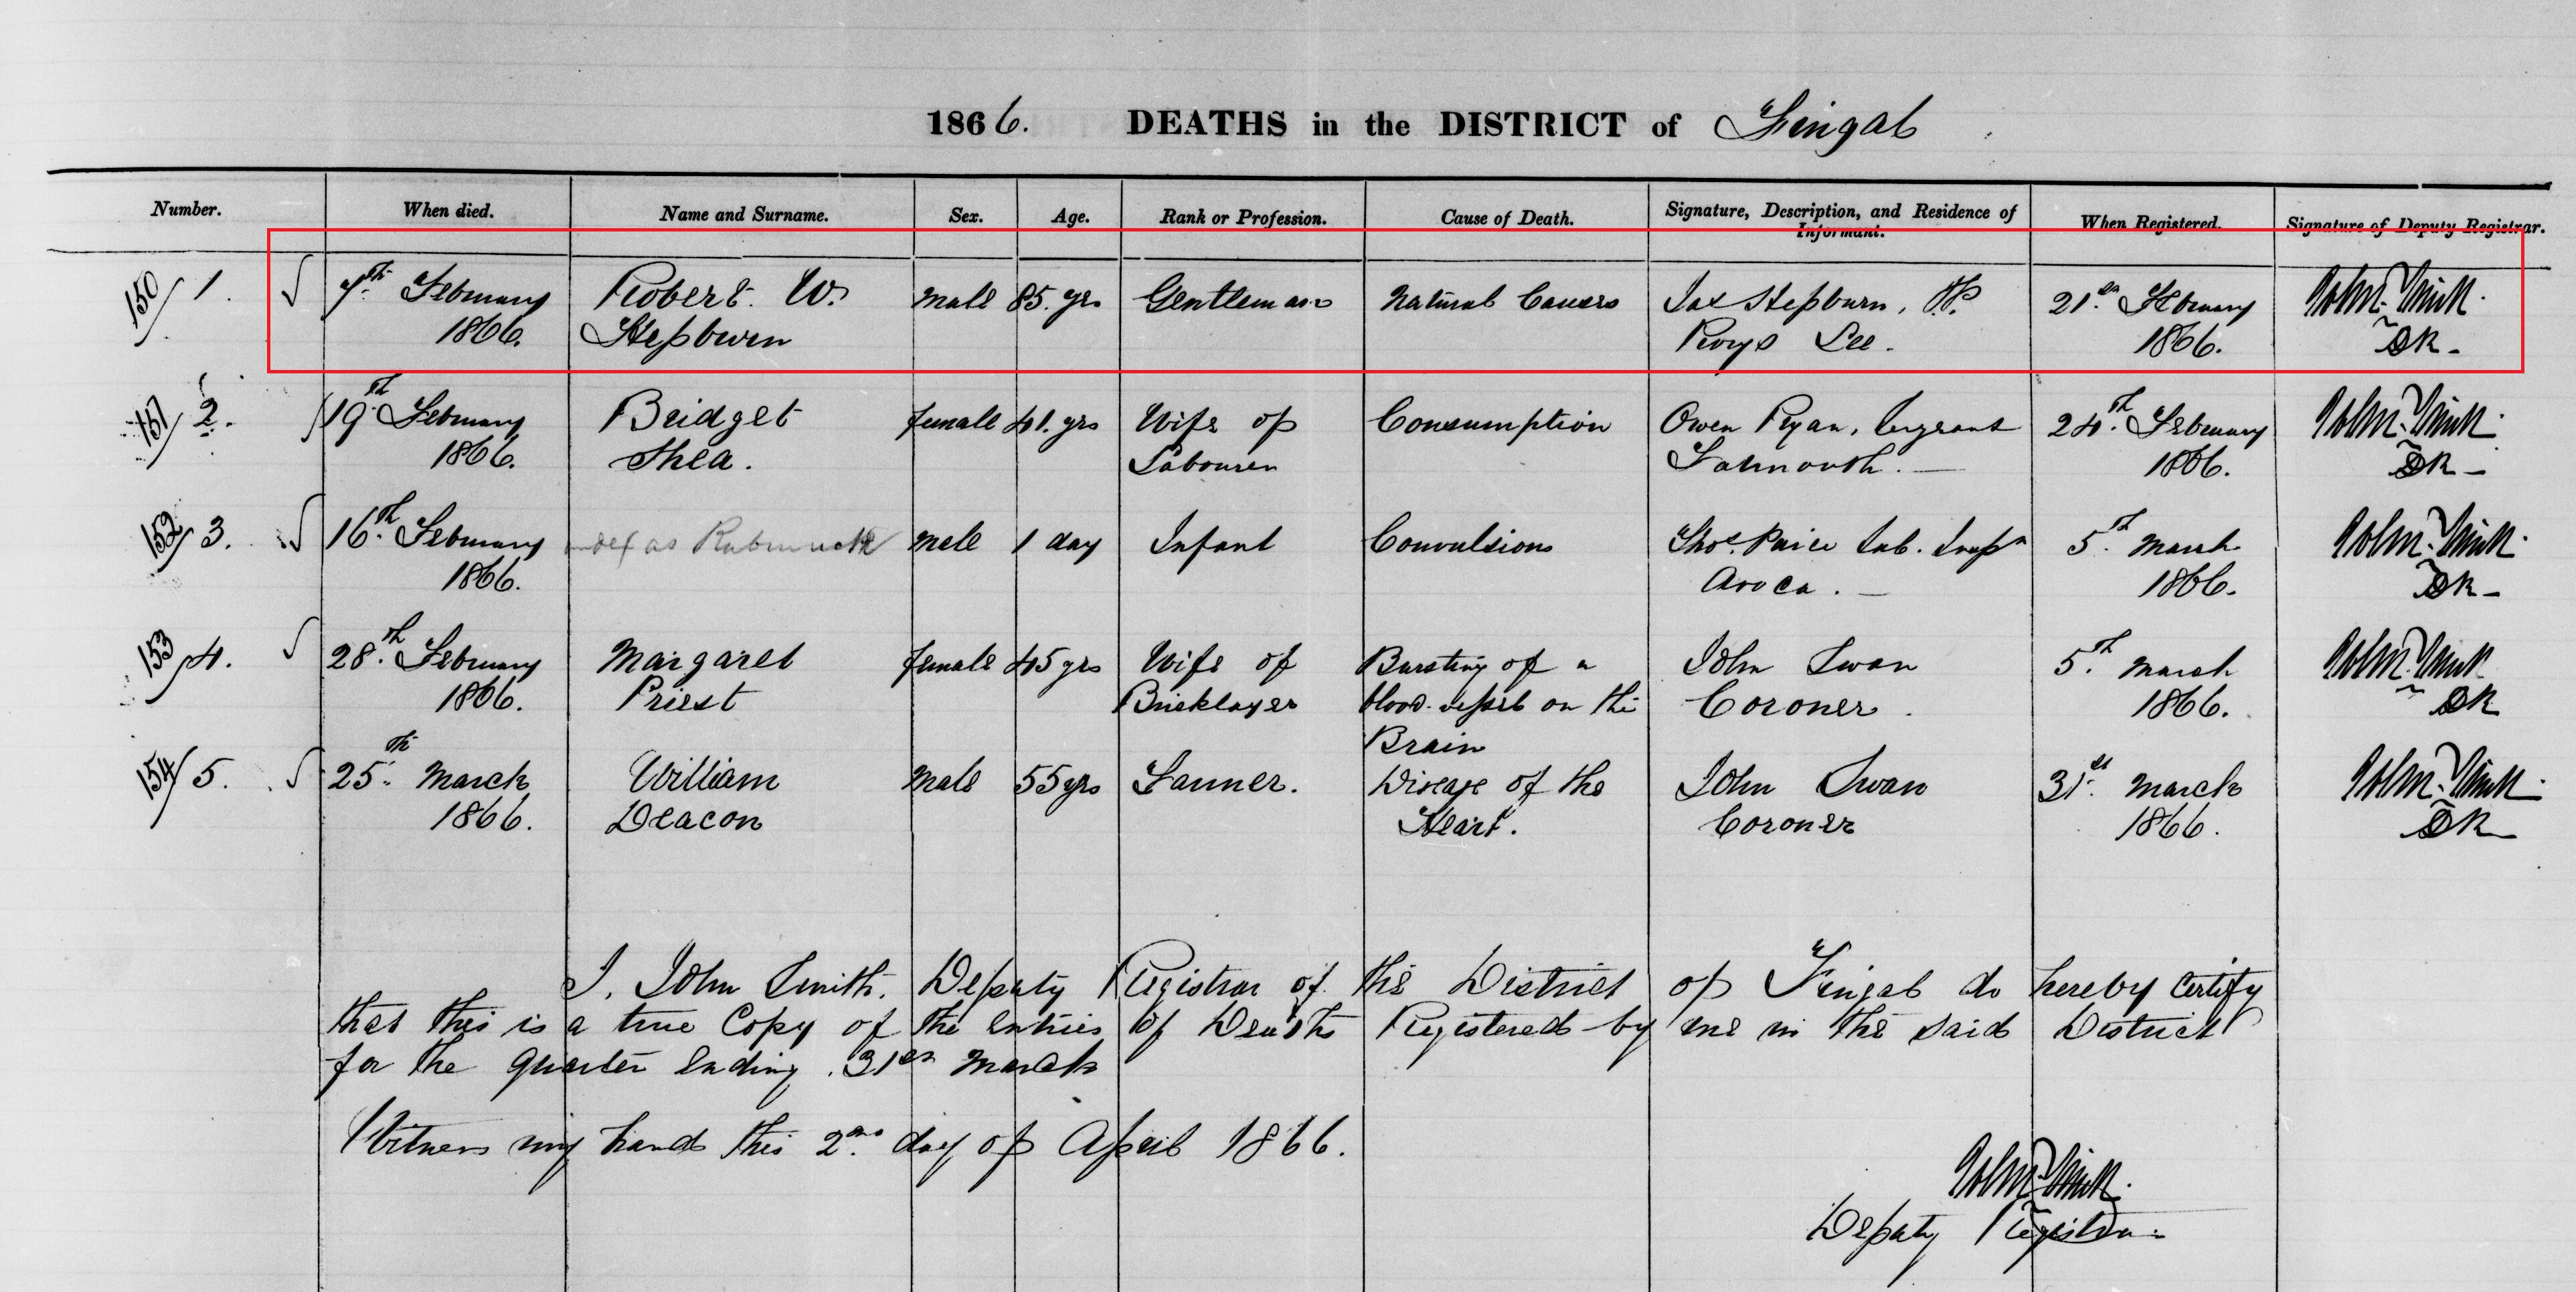 1866. DEATHS in the DISTRICT of Fingal
Number. When died. Name and Surname. Sex. Age. Rank or Profession. Cause of Death. Signature, Description, and Residence of Informant. When Registered. Signature of Deputy Registrar.
150/ 1. 7th February Robert W. male 85. yrs Gentleman Natural Causes Jas Hepburn, J.P. 21st February John Smith
1866. Hepburn Roys Lee. 1866. DR-
151/ 2. 19th February Bridget female 41. yrs Wife of Consumption Owen Ryan, 24th February John Smith
1866. Shea. Labourer Falmouth. 1866. DR-
152/ 3. 16th February index as male 1 day Infant Convulsions Thos. Price Sub. Inspr 5th March John Smith
1866. Avoca. 1866. DR-
153/ 4. 28th February Margaret female 45 yrs Wife of Bursting of a John Swan 5th March John Smith
1866. Priest Bricklayer blood vessel on the Coroner. 1866. DR
Brain
154/ 5. 25th March William male 55 yrs Farmer. Disease of the John Swan 31st March John Smith
1866. Deacon Heart. Coroner 1866. DR
I, John Smith, Deputy Registrar of the District of Fingal do hereby certify
that this is a true Copy of the Entries of Deaths Registered by me in the said District
for the Quarter Ending 31st March
Witness my hand this 2nd day of April 1866.
John Smith.
Deputy Registrar